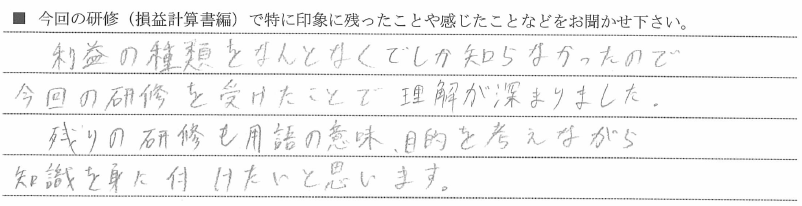 ■ 今回の研修（損益計算書編）で特に印象に残ったことや感じたことなどをお聞かせ下さい。
利益の種類をなんとなくでしか知らなかったので
今回の研修を受けたことで理解が深まりました.
残りの研修も用語の意味、目的を考えながら
知識を身に付けたいと思います。